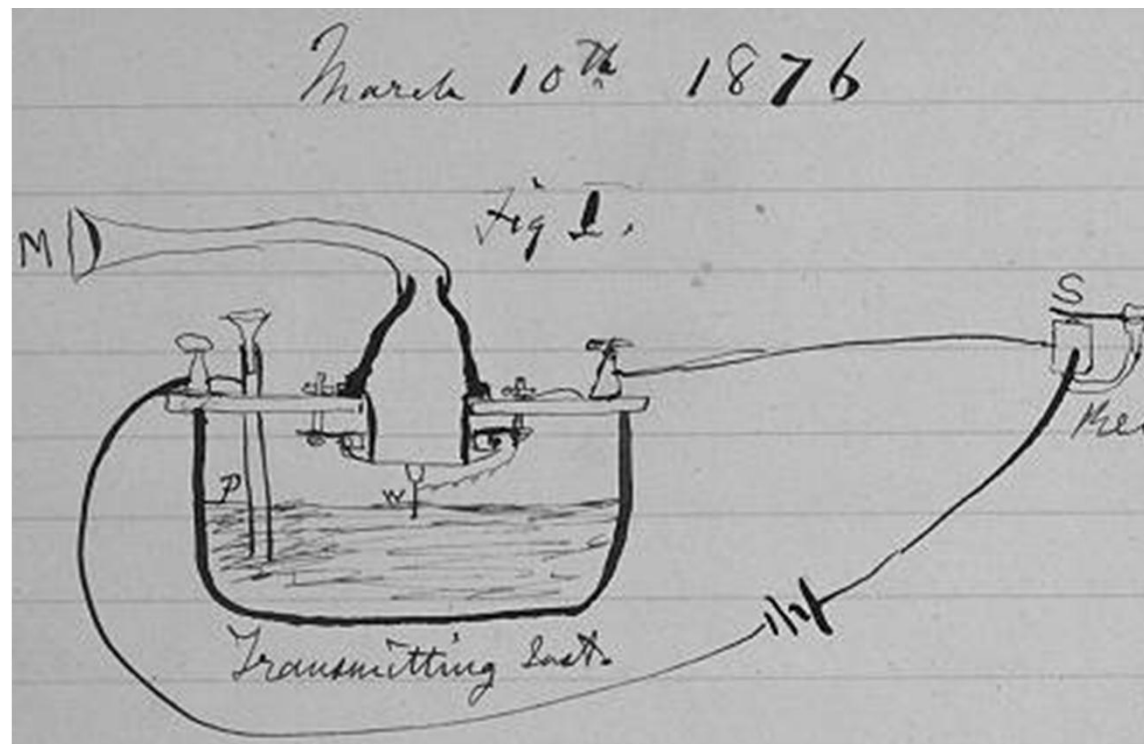 March 10th 1876
Fig 1.
M
S
P
W
Transmitting Inst.